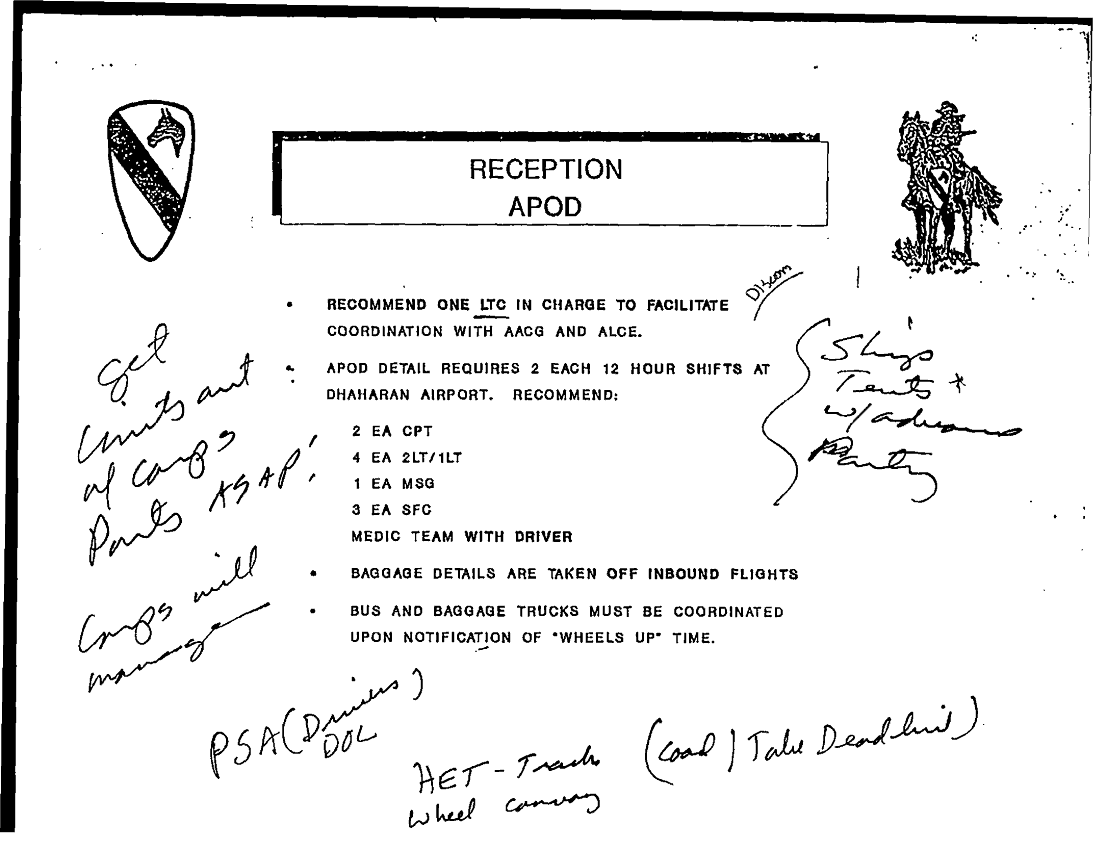 RECEPTION
APOD
Discom
• RECOMMEND ONE LTC IN CHARGE TO FACILITATE
COORDINATION WITH AACG AND ALCE.
• APOD DETAIL REQUIRES 2 EACH 12 HOUR SHIFTS AT
DHAHARAN AIRPORT. RECOMMEND:
2 EA CPT
4 EA 2LT/1LT
1 EA MSG
3 EA SFC
MEDIC TEAM WITH DRIVER
• BAGGAGE DETAILS ARE TAKEN OFF INBOUND FLIGHTS
• BUS AND BAGGAGE TRUCKS MUST BE COORDINATED
UPON NOTIFICATION OF "WHEELS UP" TIME.
Ships
Tents *
w/advance
Party
get
units out
of Corps
Ports ASAP!
Corps will
manage
PSA (Drivers)
DOL
HET - Tracks
wheel convoy
(Coord | Take Dead